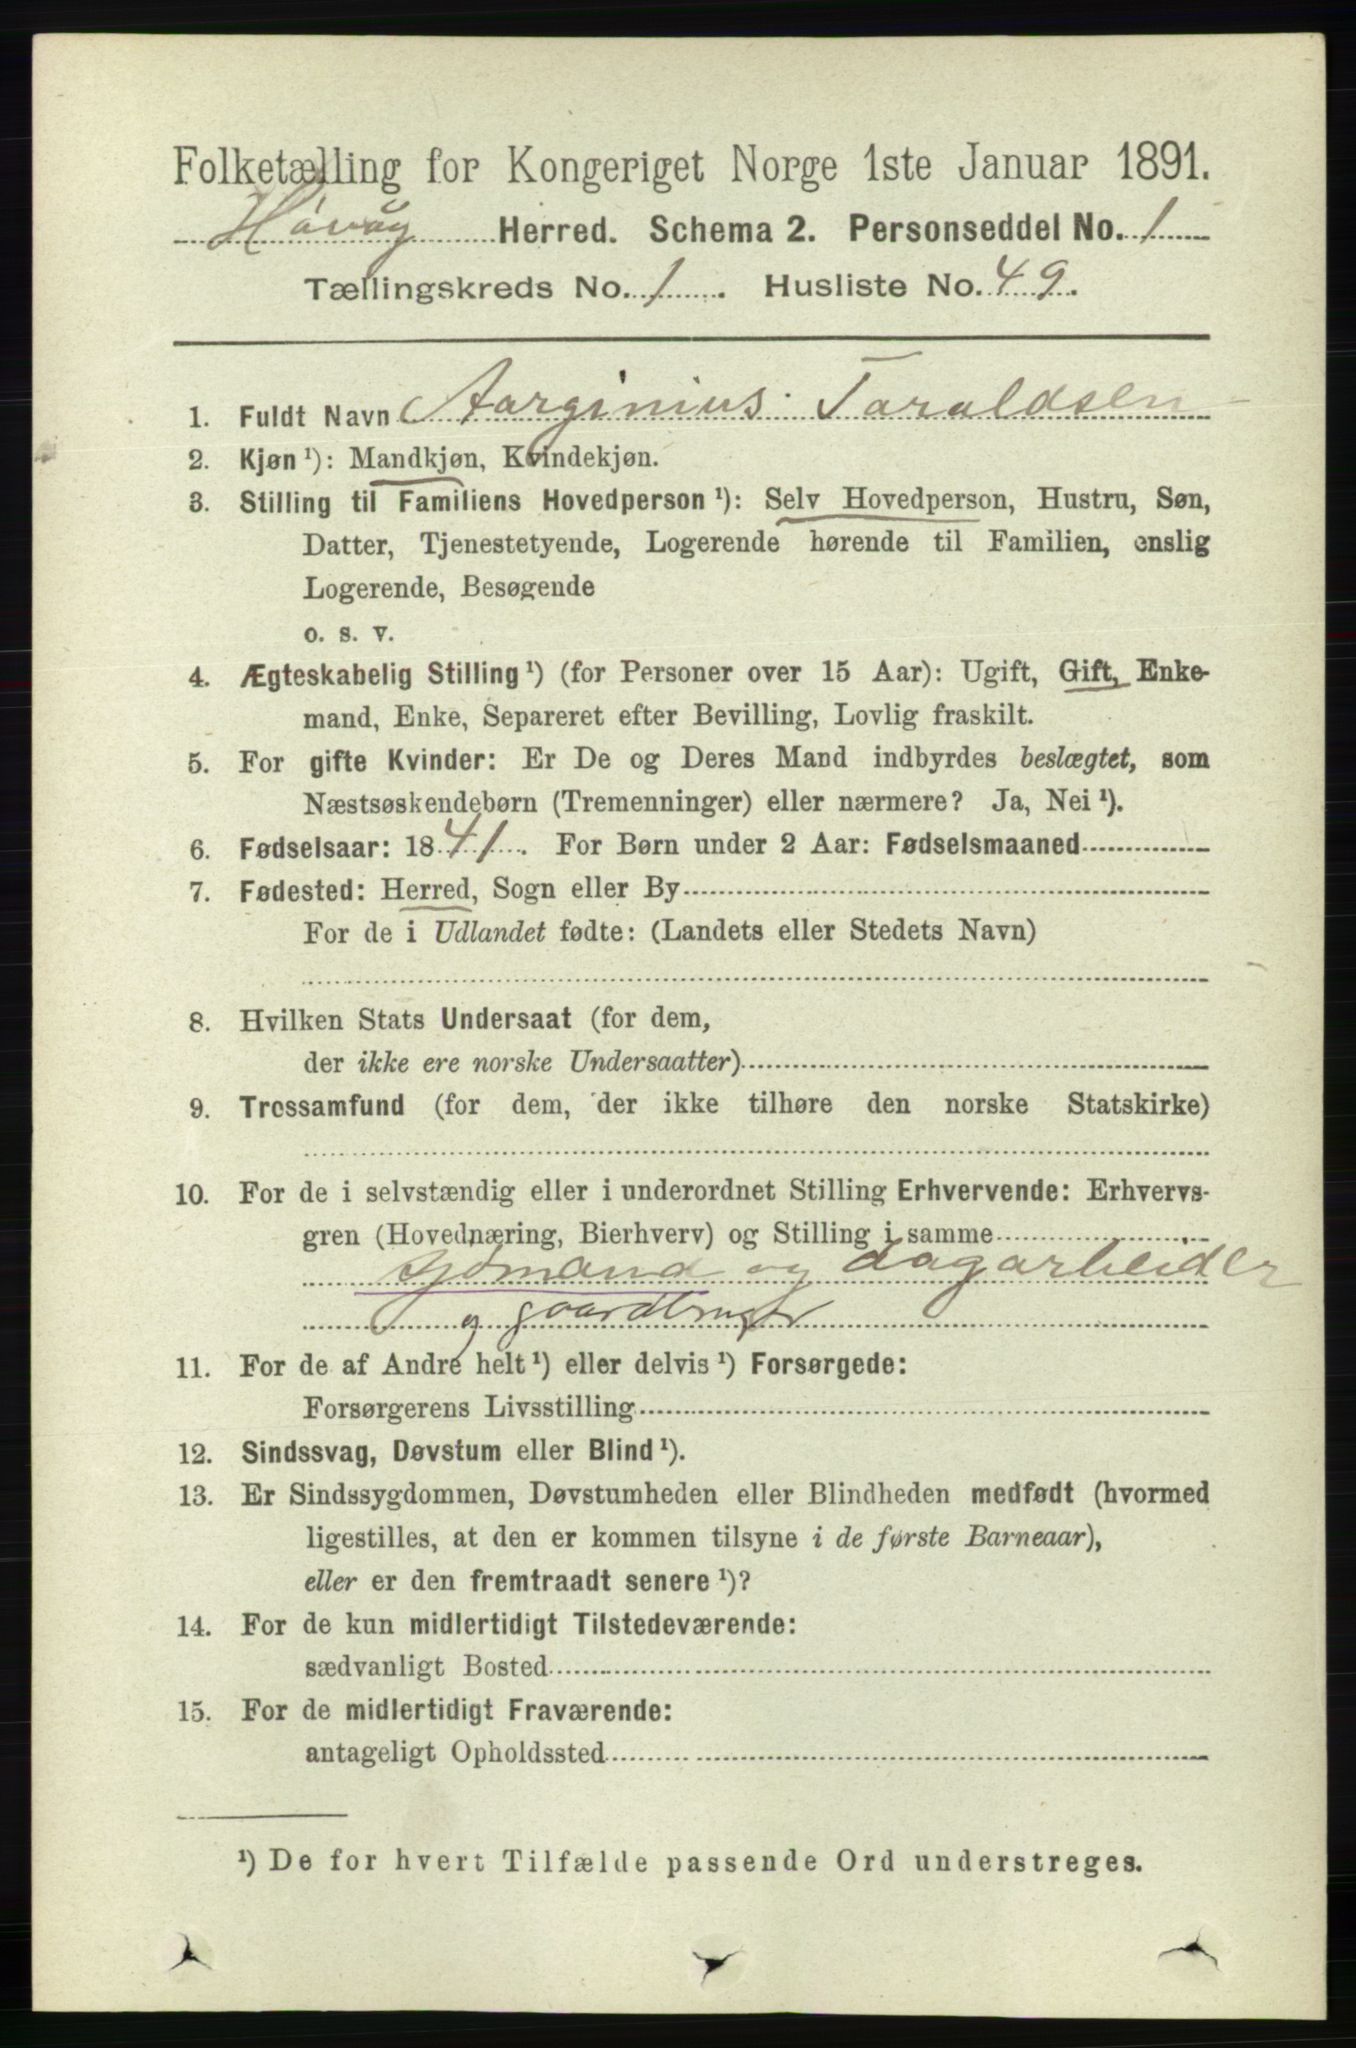 Folketælling for Kongeriget Norge 1ste Januar 1891.
Høvåg Herred. Schema 2. Personseddel No. 1
Tællingskreds No. 1. Husliste No. 49.
1. Fuldt Navn Aarginius Taraldsen
2. Kjøn ¹): Mandkjøn, Kvindekjøn.
3. Stilling til Familiens Hovedperson ¹): Selv Hovedperson, Hustru, Søn,
Datter, Tjenestetyende, Logerende hørende til Familien, enslig
Logerende, Besøgende
o. s. v.
4. Ægteskabelig Stilling ¹) (for Personer over 15 Aar): Ugift, Gift, Enke-
mand, Enke, Separeret efter Bevilling, Lovlig fraskilt.
5. For gifte Kvinder: Er De og Deres Mand indbyrdes beslægtet, som
Næstsøskendebørn (Tremenninger) eller nærmere? Ja, Nei ¹).
6. Fødselsaar: 1841. For Børn under 2 Aar: Fødselsmaaned
7. Fødested: Herred, Sogn eller By
For de i Udlandet fødte: (Landets eller Stedets Navn)
8. Hvilken Stats Undersaat (for dem,
der ikke ere norske Undersaatter)
9. Trossamfund (for dem, der ikke tilhøre den norske Statskirke)
10. For de i selvstændig eller i underordnet Stilling Erhvervende: Erhvervs-
gren (Hovednæring, Bierhverv) og Stilling i samme
sjømand og dagarbeider
og gaardbruger
11. For de af Andre helt ¹) eller delvis ¹) Forsørgede:
Forsørgerens Livsstilling
12. Sindssvag, Døvstum eller Blind ¹).
13. Er Sindssygdommen, Døvstumheden eller Blindheden medfødt (hvormed
ligestilles, at den er kommen tilsyne i de første Barneaar),
eller er den fremtraadt senere ¹)?
14. For de kun midlertidigt Tilstedeværende:
sædvanligt Bosted
15. For de midlertidigt Fraværende:
antageligt Opholdssted
¹) De for hvert Tilfælde passende Ord understreges.